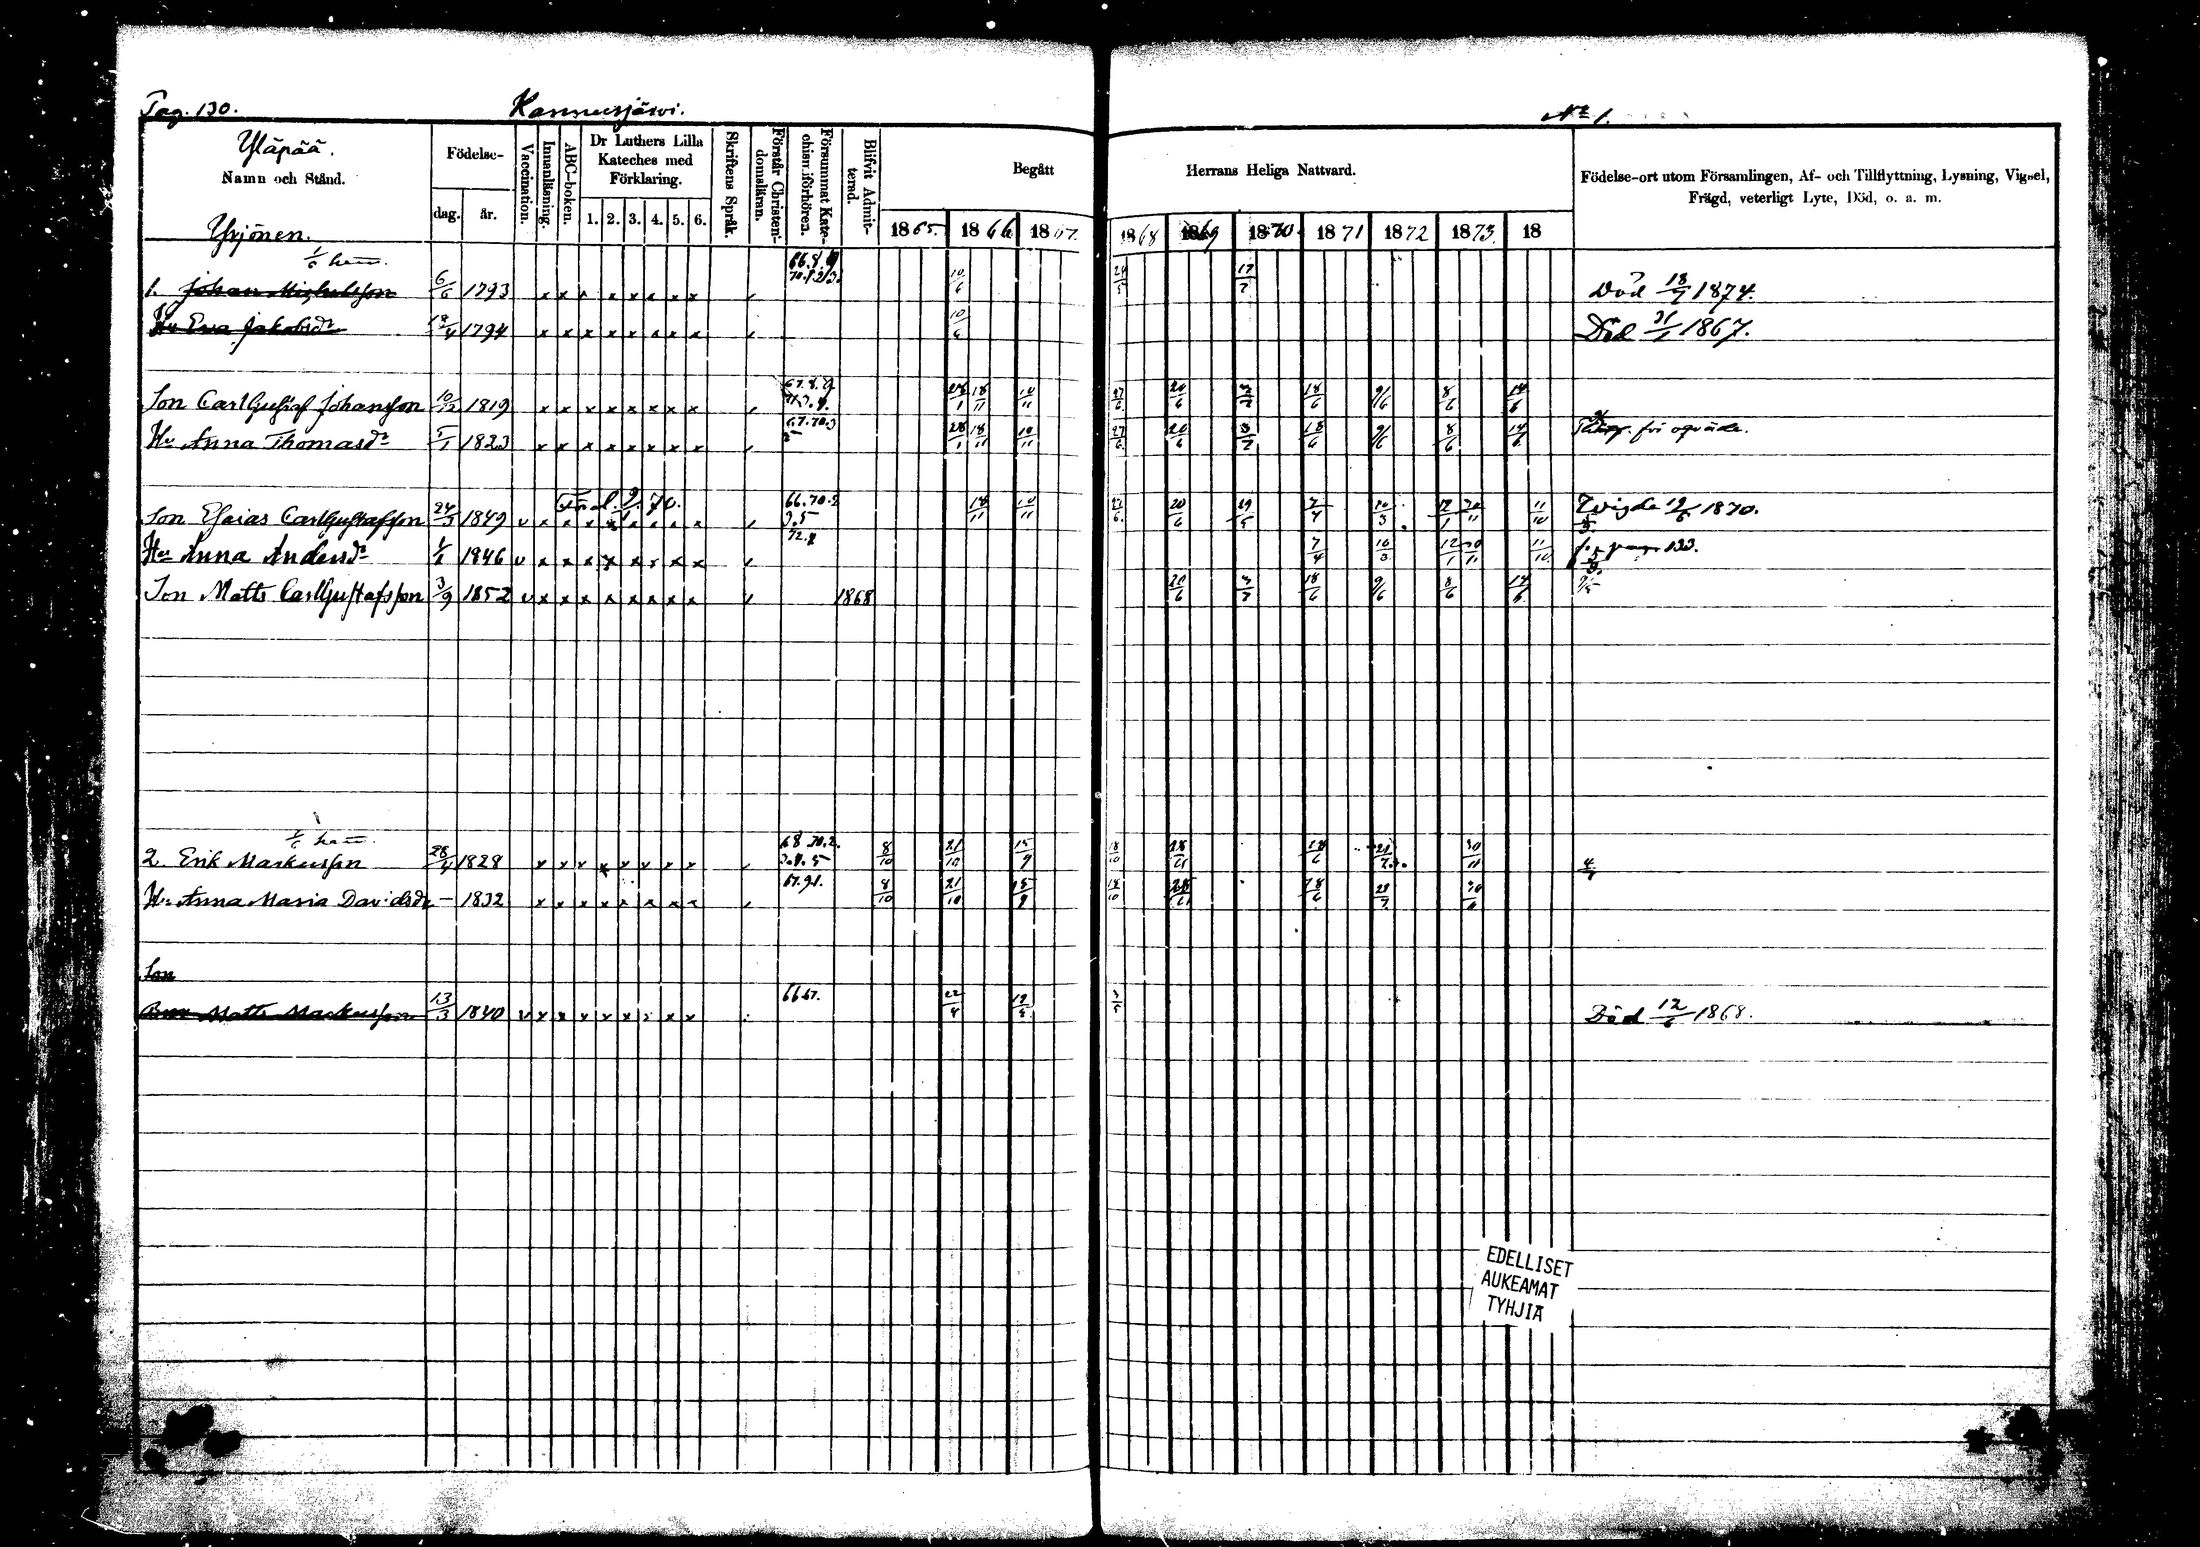 Pag. 130. Kannusjärvi. No 1.
Yläpää.
Namn och Stånd.
Yrjönen.
Födelse-
dag. år.
Vaccination.
Innanläsning.
ABC-boken.
Dr Luthers Lilla
Kateches med
Förklaring.
1. 2. 3. 4. 5. 6.
Skriftens Språk.
Förstår Christen-
domsläran.
Försummat Kate-
chismiförhören.
Blifvit Admit-
terad.
Begått Herrans Heliga Nattvard.
1865. 1866 1867. 1868 1869 1870. 1871 1872 1873. 18
Födelse-ort utom Församlingen, Af- och Tillflyttning, Lysning, Vigsel,
Frägd, veterligt Lyte, Död, o. a. m.
1/6 hem.
1. Johan Michelsson 6/6 1793 x x x x x x x x 10/6 24/5 17/7 Död 18/7 1874.
Hu Eva Jakobsdr 1794 x x x x x x x x 10/6 Död 31/1 1867.
Son Carl Gustaf Johansson 10/12 1819 x x x x x x x x 28/1 18/11 10/11 27/6 20/6 3/7 18/6 9/6 8/6 14/6
Hu Anna Thomasdr 5/1 1823 x x x x x x x x 67.70.3 28/1 18/11 10/11 27/6 20/6 3/7 18/6 9/6 8/6 14/6
Son Esaias Carl Gustafsson 24/3 1849 v x x x x x x x x 66.70.2 3.5 72. 18/11 10/11 27/6 20/6 29/5 7/4 10/3 12/1 30/11 11/10 vigde 19/6 1870.
Hu Anna Andersdr 1/1 1846 v x x x x x x x x 7/4 10/3 12/1 30/11 11/10 133.
Son Matts Carl Gustafsson 3/9 1852 v x x x x x x x x 1868 20/6 3/7 18/6 9/6 8/6 14/6
1/6 hem.
2. Erik Markusson 28/4 1828 x x x x x x x x 68 70.2. 8/10 21/10 15/9 18/10 28/11 18/6 30/11
Hu Anna Maria Davidsdr - 1832 x x x x x x x x 8/10 21/10 15/9 18/10 28/11 18/6
Son
Bror Matts Markusson 13/3 1840 v x x x x x x x x 66 67. 22/4 3/5 Död 12/6 1868.
EDELLISET
AUKEAMAT
TYHJIÄ